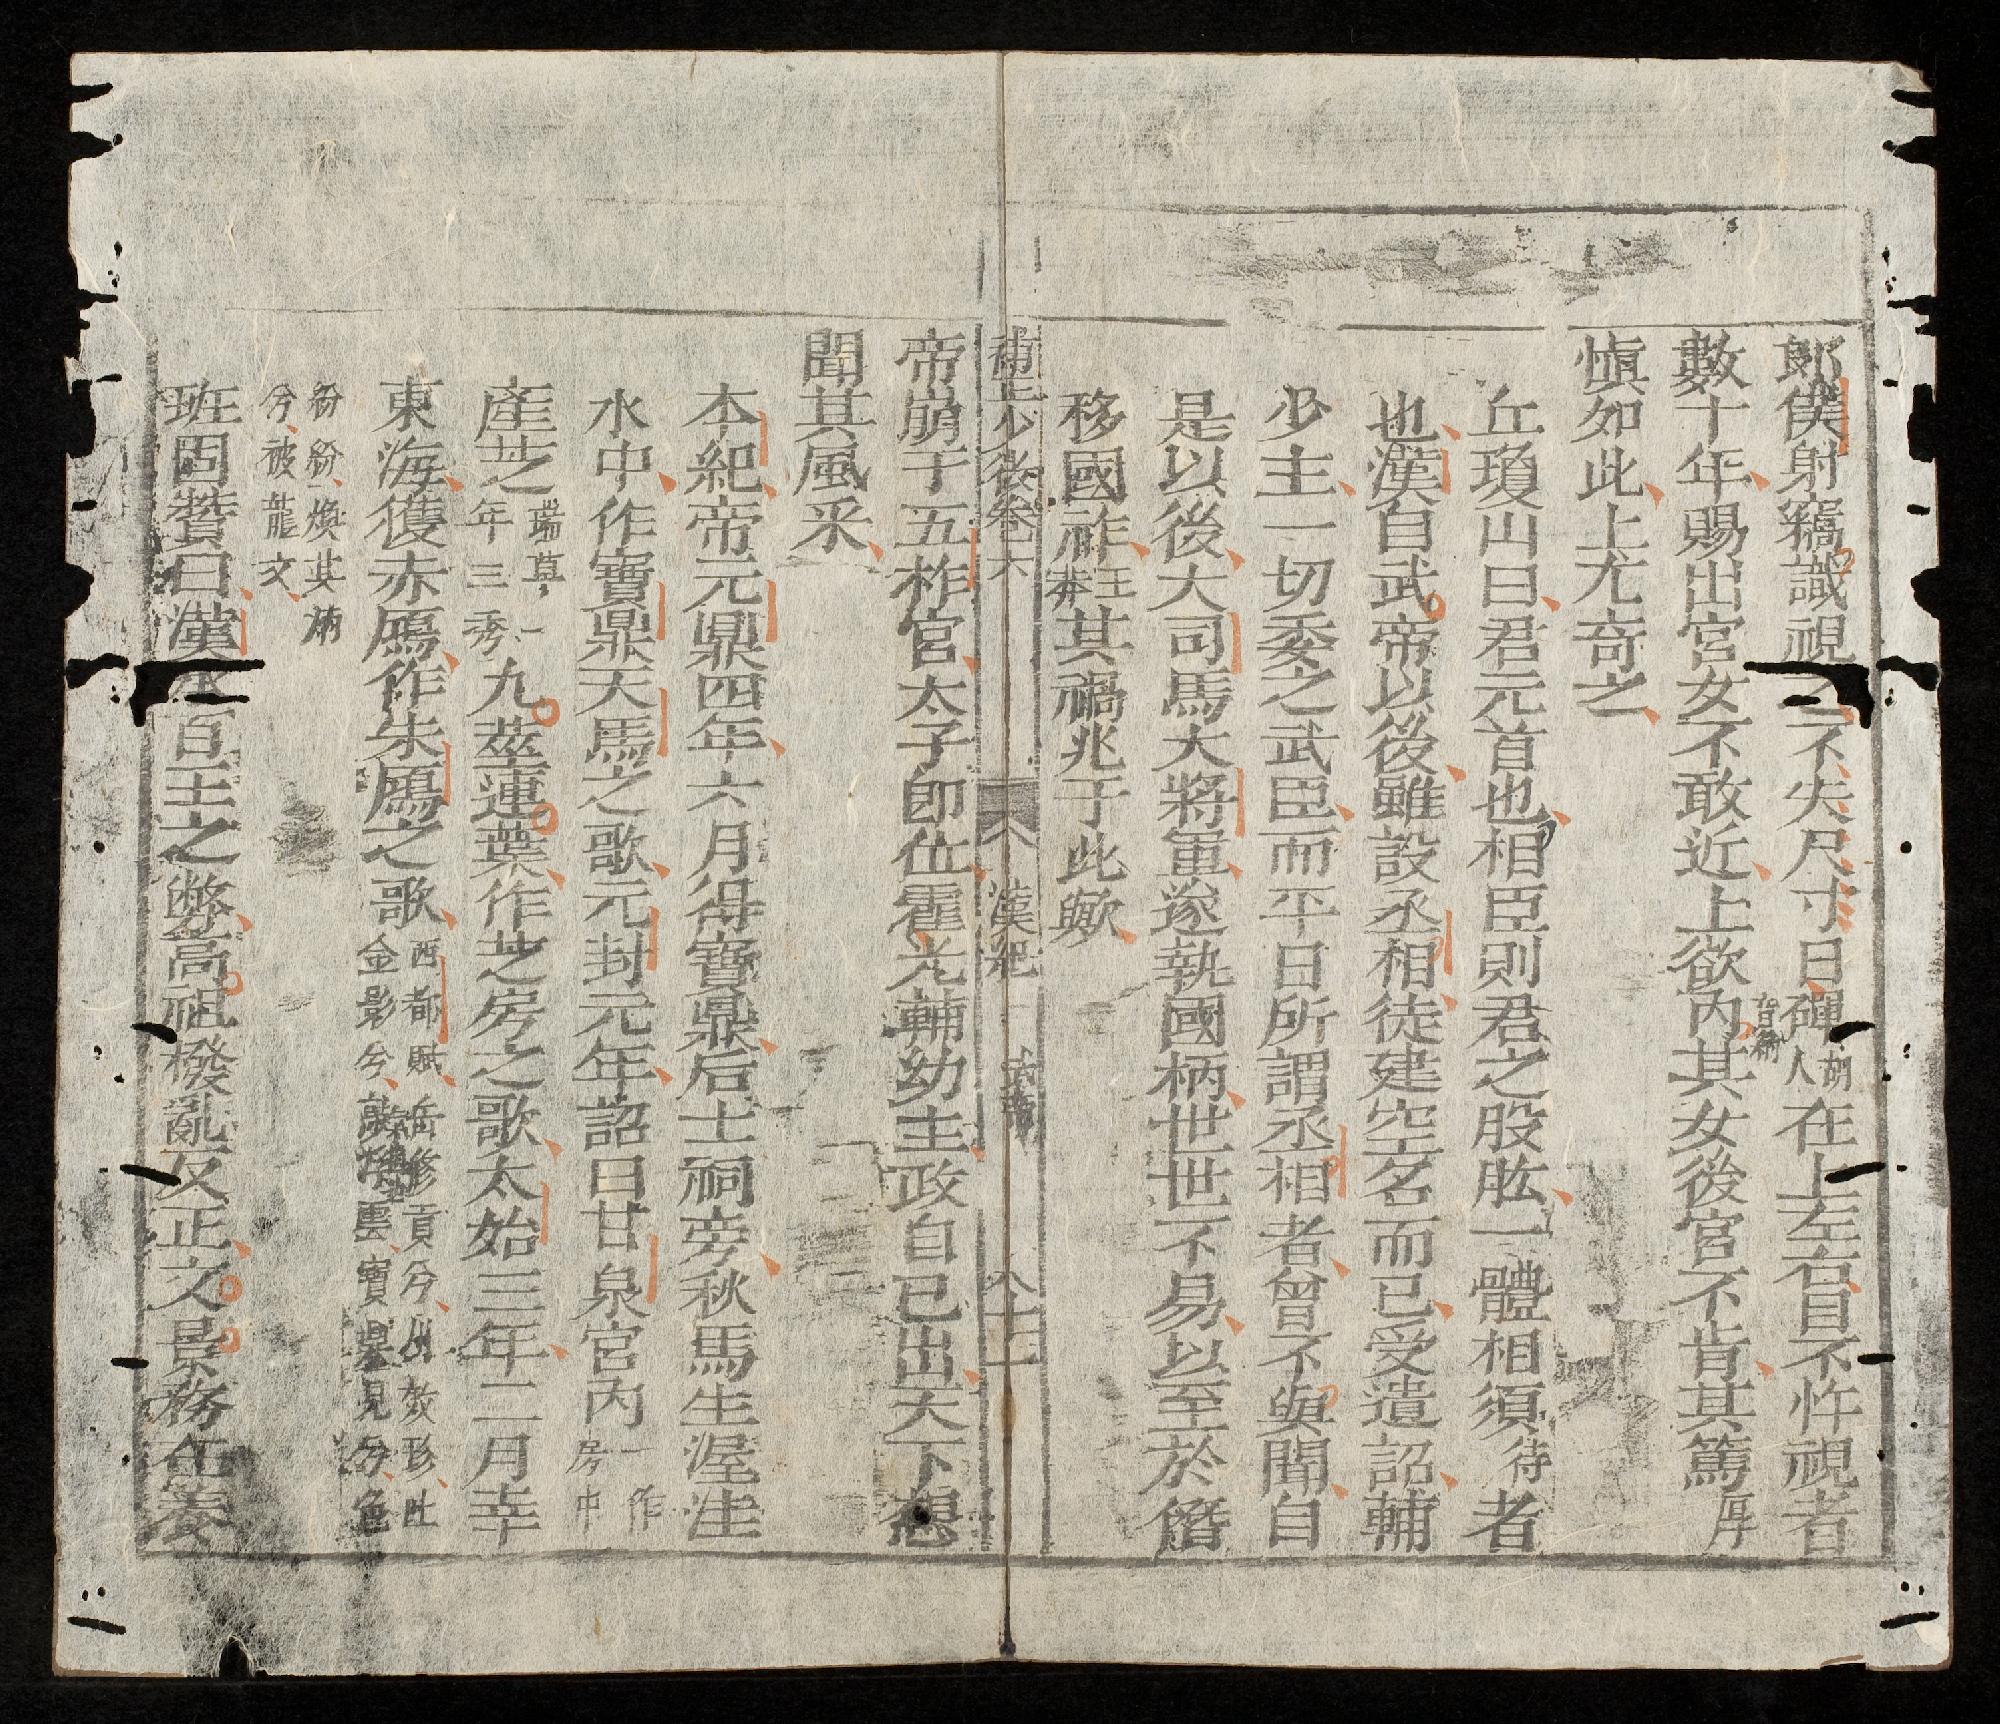 郞僕射竊識視之不失尺寸日磾胡人在上左右目不忤視者
數十年賜出宮女不敢近上欲內音納其女後宮不肯其篤厚
愼如此上尤奇之
丘瓊山曰君元首也相臣則君之股肱一體相須待者
也漢自武帝以後雖設丞相徒建空名而已受遺詔輔
少主一切委之武臣而平日所謂丞相者曾不與聞自
是以後大司馬大將軍遂執國柄世世不易以至於僭
移國祚王莽其禍兆于此歟
補上少微卷六 八 漢紀 武帝 八十七
帝崩于五柞宮太子卽位霍光輔幼主政自已出天下想
聞其風釆
本紀帝元鼎四年六月得寶鼎后土祠旁秋馬生渥洼
水中作寶鼎天馬之歌元封元年詔曰甘泉宮內一作房中
產芝瑞草一年三秀九莖蓮葉作芝房之歌太始三年二月幸
東海獲赤鴈作朱鴈之歌西都賦岳修貢兮川效珍吐金影兮歊浮雲寶鼎見兮色
紛紛煥其炳兮被龍文
班固贊曰漢承百王之弊高祖撥亂反正文景務在養